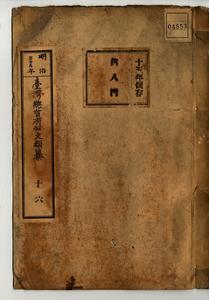 04853
十五年保存
第八門
明治
四十五年
臺灣總督府公文類纂
十六